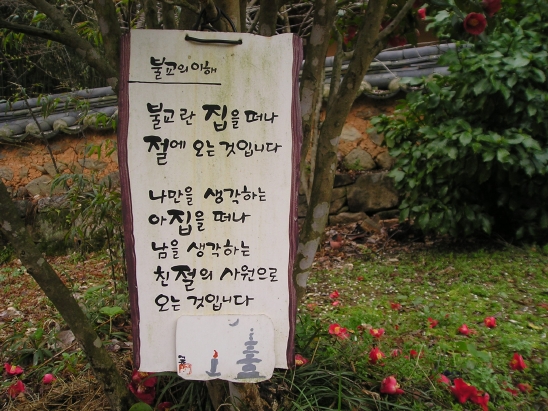 불교의 이해
불교란 집을 떠나
절에 오는 것입니다
나만을 생각하는
아집을 떠나
남을 생각하는
친절의 사원으로
오는 것입니다